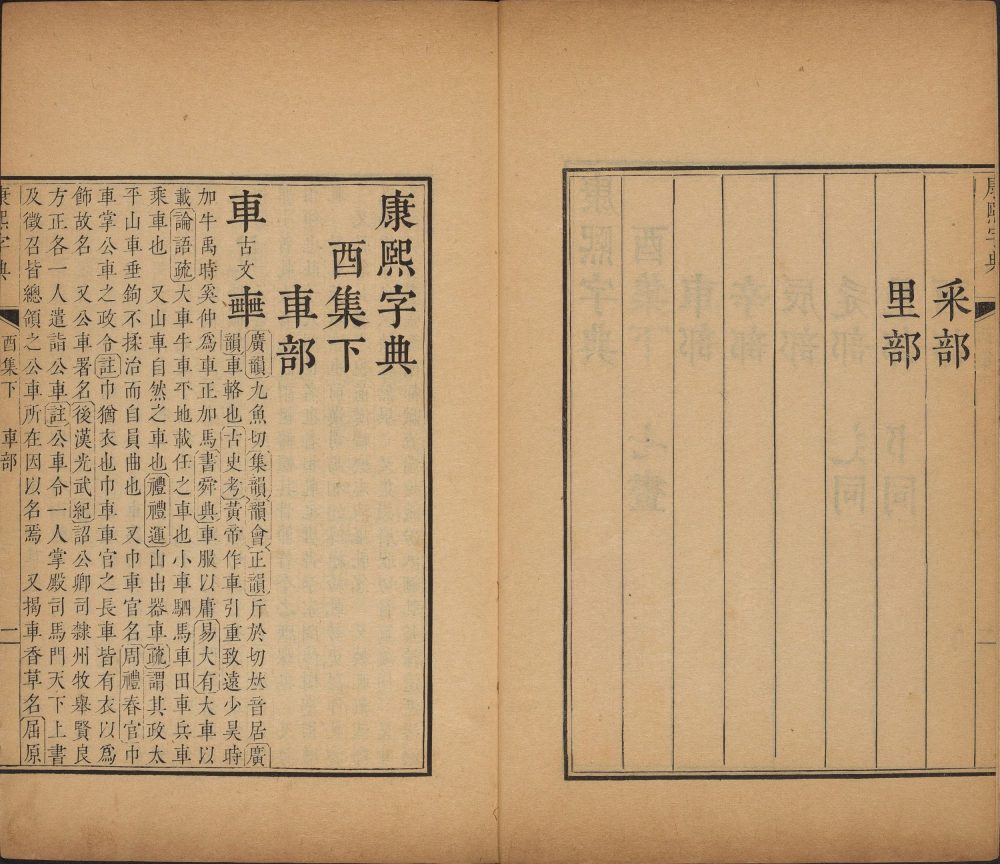 康熙字典
釆部
里部
康熙字典
酉集下
車部
車 古文𨏖 廣韻九魚切集韻韻會正韻斤於切𠀤音居廣
韻車輅也古史考黃帝作車引重致遠少昊時
加牛禹時奚仲爲車正加馬書舜典車服以庸易大有大車以
載論語疏大車牛車平地載任之車也小車駟馬車田車兵車
乘車也 又山車自然之車也禮禮運山出器車疏謂其政太
平山車垂鉤不揉治而自員曲也 又巾車官名周禮春官巾
車掌公車之政令註巾猶衣也巾車車官之長車皆有衣以爲
飾故名 又公車署名後漢光武紀詔公卿司隸州牧舉賢良
方正各一人遣詣公車註公車令一人掌殿司馬門天下上書
及徵召皆總領之公車所在因以名焉 又揭車香草名屈原
康熙字典 酉集下 車部 一